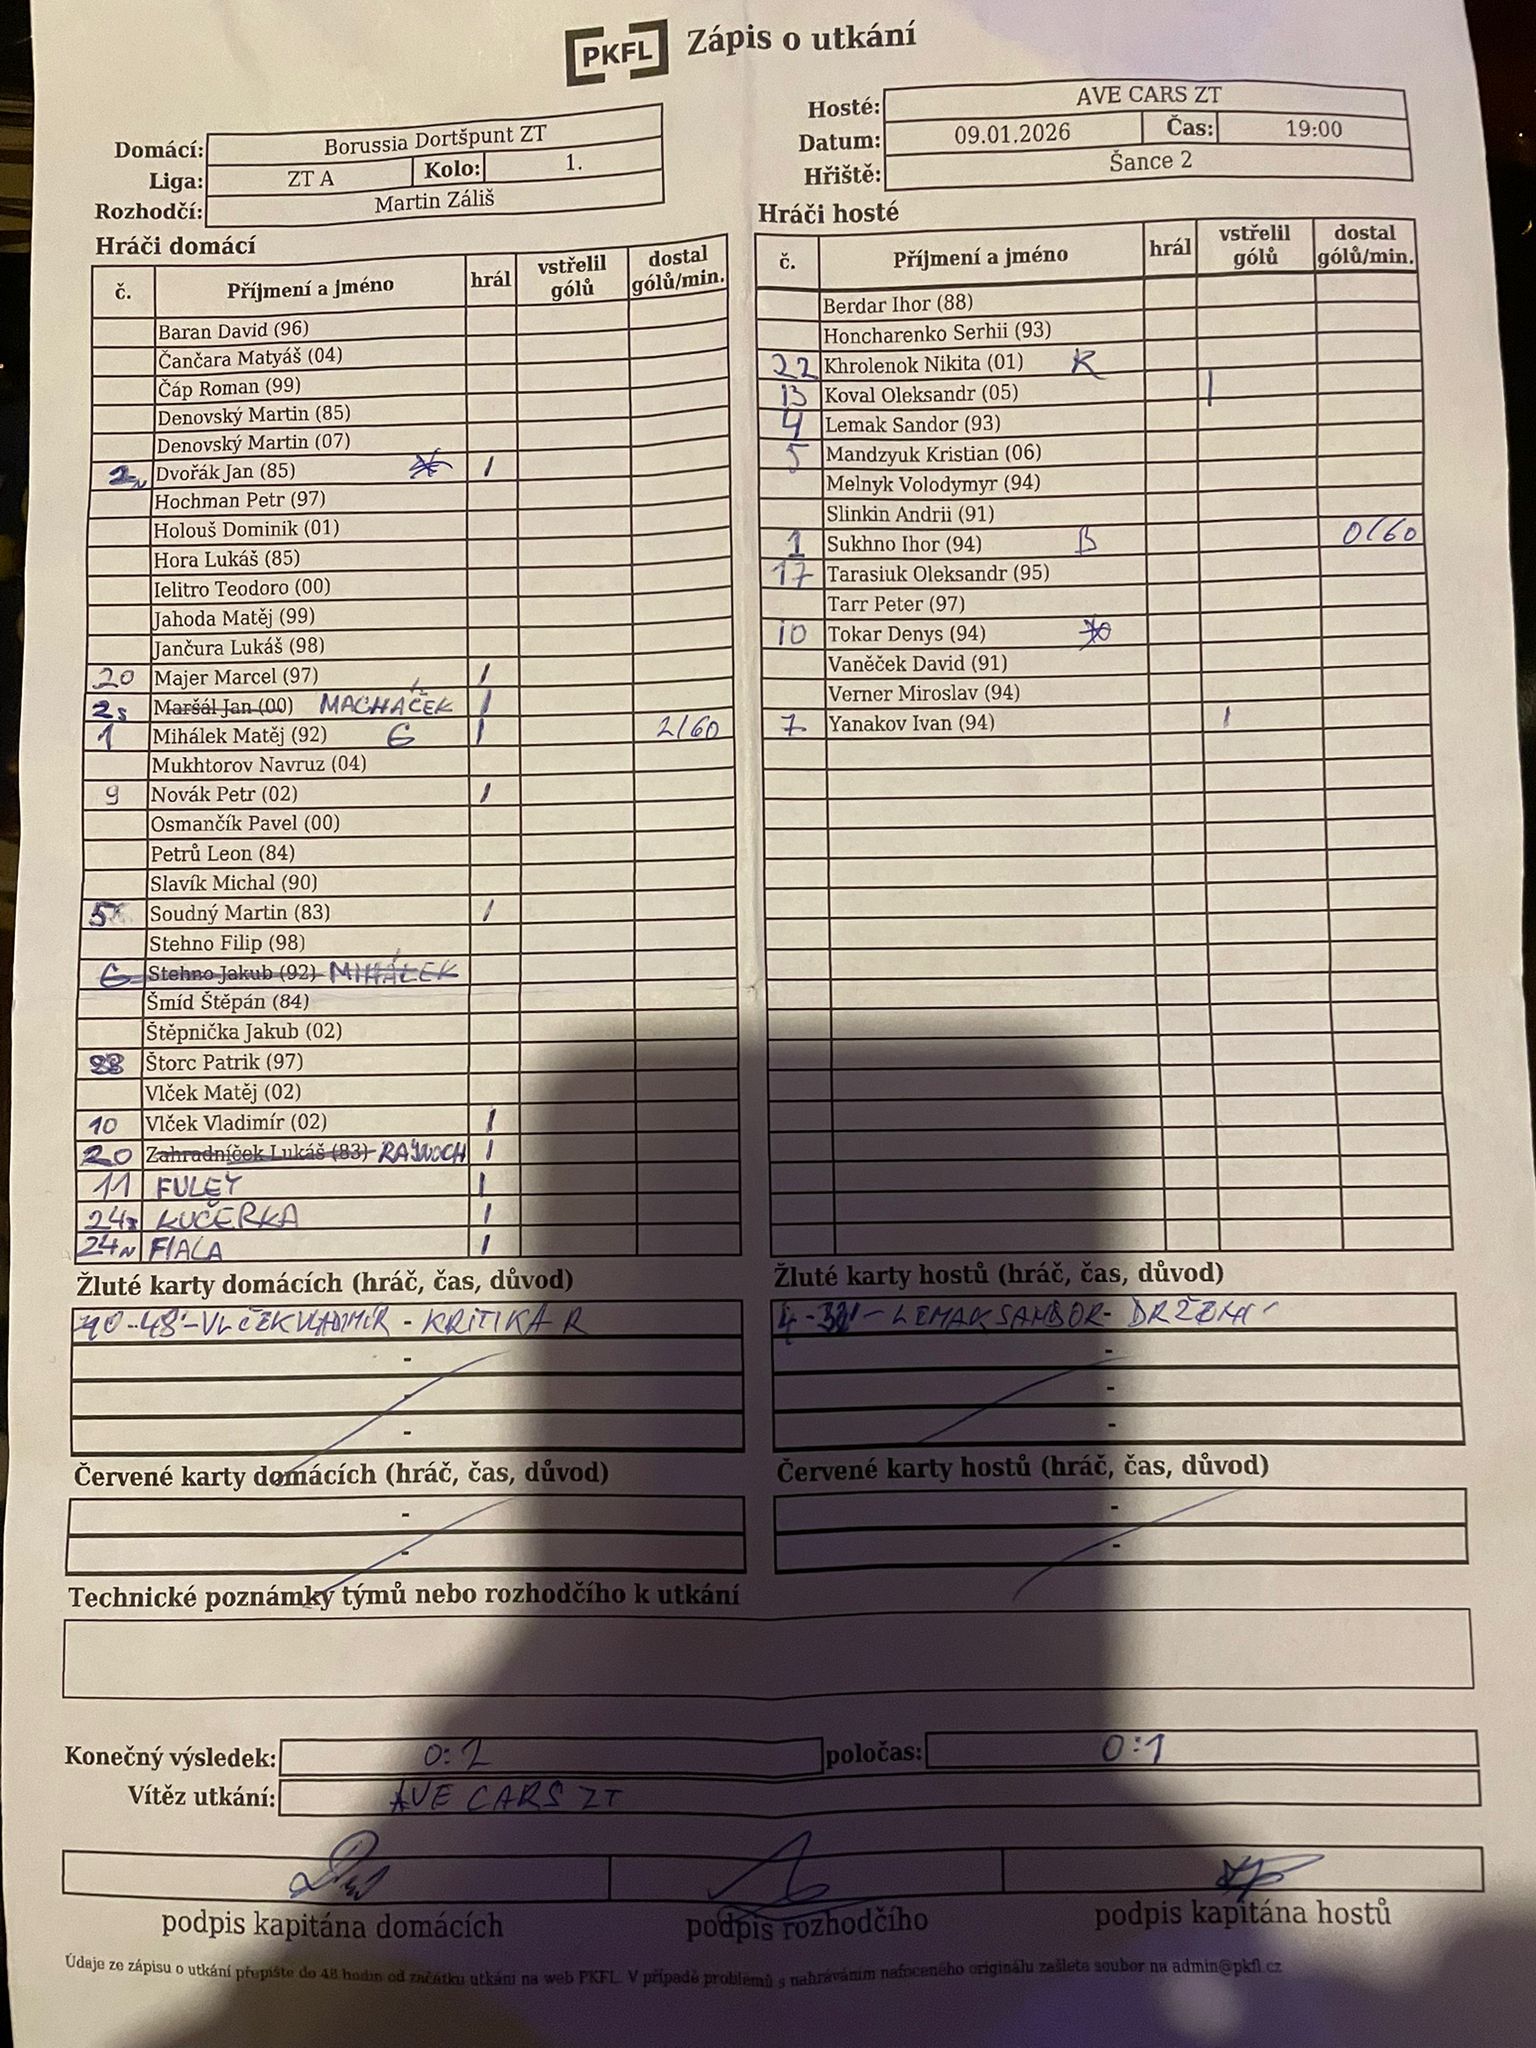 PKFL Zápis o utkání
Domácí: Borussia Dortšpunt ZT
Liga: ZT A Kolo: 1.
Rozhodčí: Martin Záliš
Hosté: AVE CARS ZT
Datum: 09.01.2026 Čas: 19:00
Hřiště: Šance 2
Hráči domácí
č. Příjmení a jméno hrál vstřelil gólů dostal gólů/min.
Baran David (96)
Čančara Matyáš (04)
Čáp Roman (99)
Denovský Martin (85)
Denovský Martin (07)
2N Dvořák Jan (85) I
Hochman Petr (97)
Holouš Dominik (01)
Hora Lukáš (85)
Ielitro Teodoro (00)
Jahoda Matěj (99)
Jančura Lukáš (98)
20 Majer Marcel (97) I
2S Maršál Jan (00) MACHÁČEK I
1 Mihálek Matěj (92) G I 2/60
Mukhtorov Navruz (04)
9 Novák Petr (02) I
Osmančík Pavel (00)
Petrů Leon (84)
Slavík Michal (90)
5 Soudný Martin (83) I
Stehno Filip (98)
G Stehno Jakub (92) MIHÁLEK
Šmíd Štěpán (84)
Štěpnička Jakub (02)
88 Štorc Patrik (97)
Vlček Matěj (02)
10 Vlček Vladimír (02) I
20 Zahradníček Lukáš (83) I
11 FULEY I
24 KUČERKA I
24N FIALA I
Hráči hosté
č. Příjmení a jméno hrál vstřelil gólů dostal gólů/min.
Berdar Ihor (88)
Honcharenko Serhii (93)
22 Khrolenok Nikita (01) K
13 Koval Oleksandr (05) I
4 Lemak Sandor (93)
5 Mandzyuk Kristian (06)
Melnyk Volodymyr (94)
Slinkin Andrii (91)
1 Sukhno Ihor (94) B 0/60
17 Tarasiuk Oleksandr (95)
Tarr Peter (97)
10 Tokar Denys (94)
Vaněček David (91)
Verner Miroslav (94)
7 Yanakov Ivan (94) I
Žluté karty domácích (hráč, čas, důvod)
10-48'-VLČEK VLADIMÍR - KRITIKA R
-
-
-
Žluté karty hostů (hráč, čas, důvod)
4 - LEMAK SANDOR - DRŽENÍ
-
-
-
Červené karty domácích (hráč, čas, důvod)
-
-
Červené karty hostů (hráč, čas, důvod)
-
-
Technické poznámky týmů nebo rozhodčího k utkání
Konečný výsledek: 0:2 poločas: 0:1
Vítěz utkání: AVE CARS ZT
podpis kapitána domácích podpis rozhodčího podpis kapitána hostů
Údaje ze zápisu o utkání přepište do 48 hodin od začátku utkání na web PKFL. V případě problémů s nahráváním nafoceného originálu zašlete soubor na admin@pkfl.cz